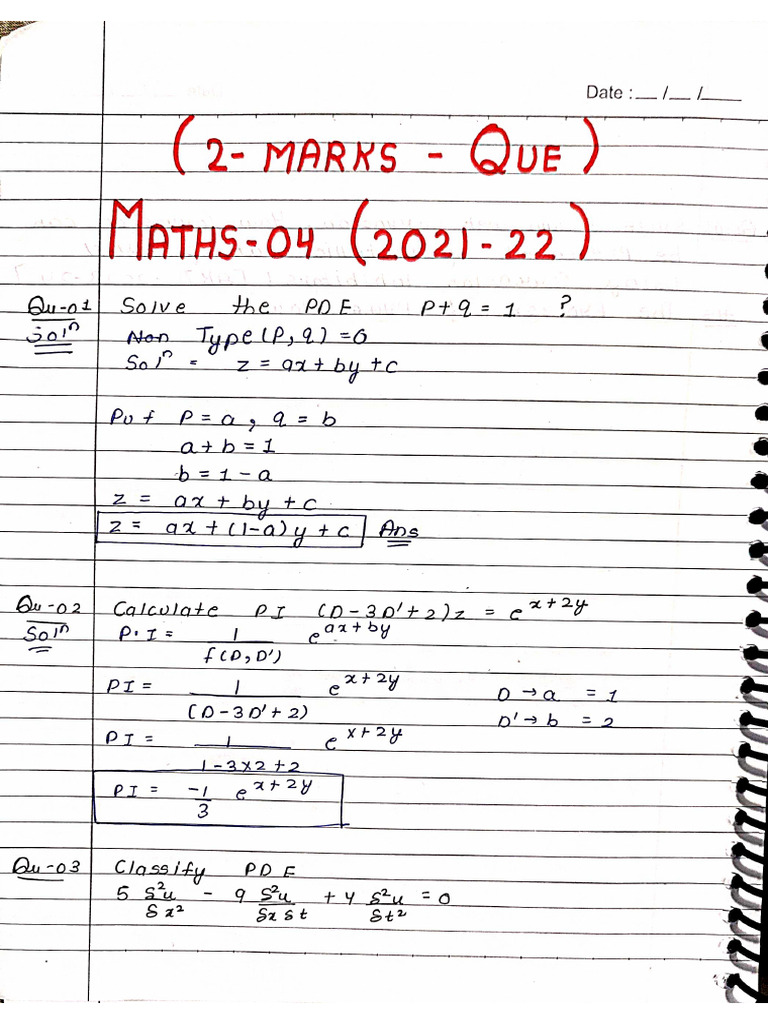 Date : __ /__ /____
(2-MARKS - QUE)
MATHS-04 (2021-22)
Qu-01 Solve the PDE P+q = 1 ?
Solⁿ Non Type (P, q) = 0
Solⁿ = z = ax + by + c
Put P = a, q = b
a + b = 1
b = 1 - a
z = ax + by + c
z = ax + (1-a) y + c Ans
Qu-02 Calculate PI (D-3D'+2)z = e^(x+2y)
Solⁿ P.I = 1/f(D,D') e^(ax+by)
PI = 1/(D-3D'+2) e^(x+2y) D → a = 1
D' → b = 2
PI = 1/(1-3×2+2) e^(x+2y)
PI = -1/3 e^(x+2y)
Qu-03 Classify PDE
5 δ²u/δx² - 9 δ²u/δxδt + 4 δ²u/δt² = 0